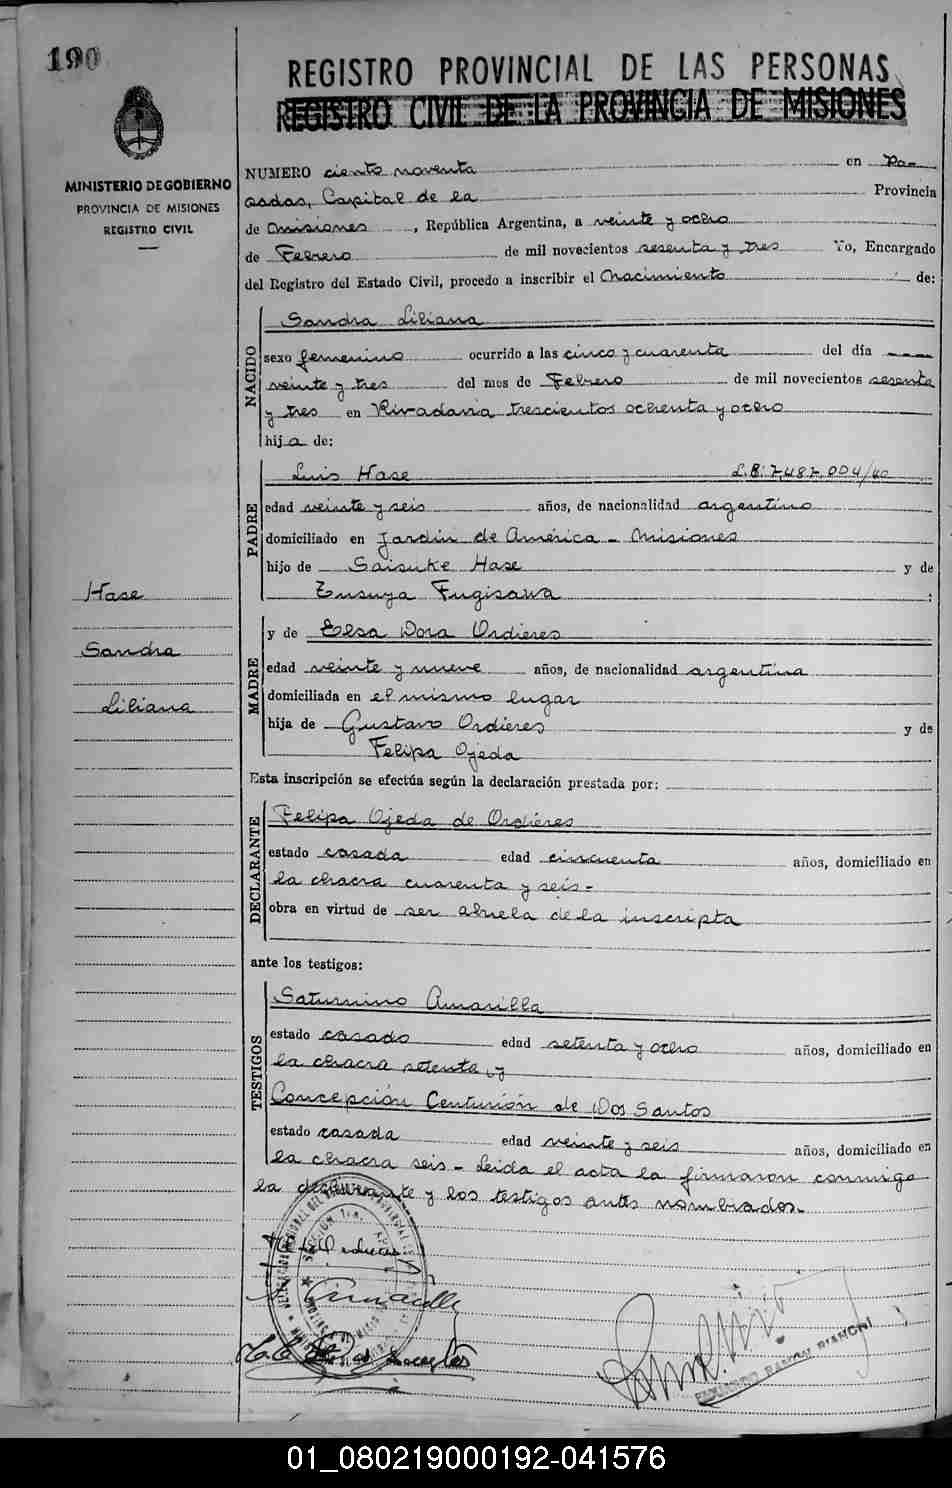 190
MINISTERIO DE GOBIERNO
PROVINCIA DE MISIONES
REGISTRO CIVIL
REGISTRO PROVINCIAL DE LAS PERSONAS
REGISTRO CIVIL DE LA PROVINCIA DE MISIONES
NUMERO ciento noventa en Po-
sadas, Capital de la Provincia
de Misiones, República Argentina, a veinte y ocho
de Febrero de mil novecientos sesenta y tres Yo, Encargado
del Registro del Estado Civil, procedo a inscribir el Nacimiento de:
NACIDO
Sandra Liliana
sexo femenino ocurrido a las cinco y cuarenta del día
veinte y tres del mes de Febrero de mil novecientos sesenta
y tres en Rivadavia trescientos ochenta y ocho
hija de:
PADRE
Luis Hase L.B: 7,487.004/40
edad veinte y seis años, de nacionalidad argentino
domiciliado en Jardín de América - Misiones
hijo de Saisuke Hase y de
Tusuya Fugisawa :
MADRE
y de Elsa Dora Ordieres
edad veinte y nueve años, de nacionalidad argentina
domiciliada en el mismo lugar
hija de Gustavo Ordieres y de
Felipa Ojeda
Hase
Sandra
Liliana
Esta inscripción se efectúa según la declaración prestada por:
DECLARANTE
Felipa Ojeda de Ordieres
estado casada edad cincuenta años, domiciliado en
la chacra cuarenta y seis-
obra en virtud de ser abuela de la inscripta
ante los testigos:
TESTIGOS
Saturnino Amarilla
estado casado edad setenta y ocho años, domiciliado en
la chacra setenta y
Concepción Centurión de Dos Santos
estado casada edad veinte y seis años, domiciliado en
la chacra seis- Leída el acta la firmaron conmigo
la declarante y los testigos antes nombrados-
EDUARDO RAMON BIANCHI
01_080219000192-041576